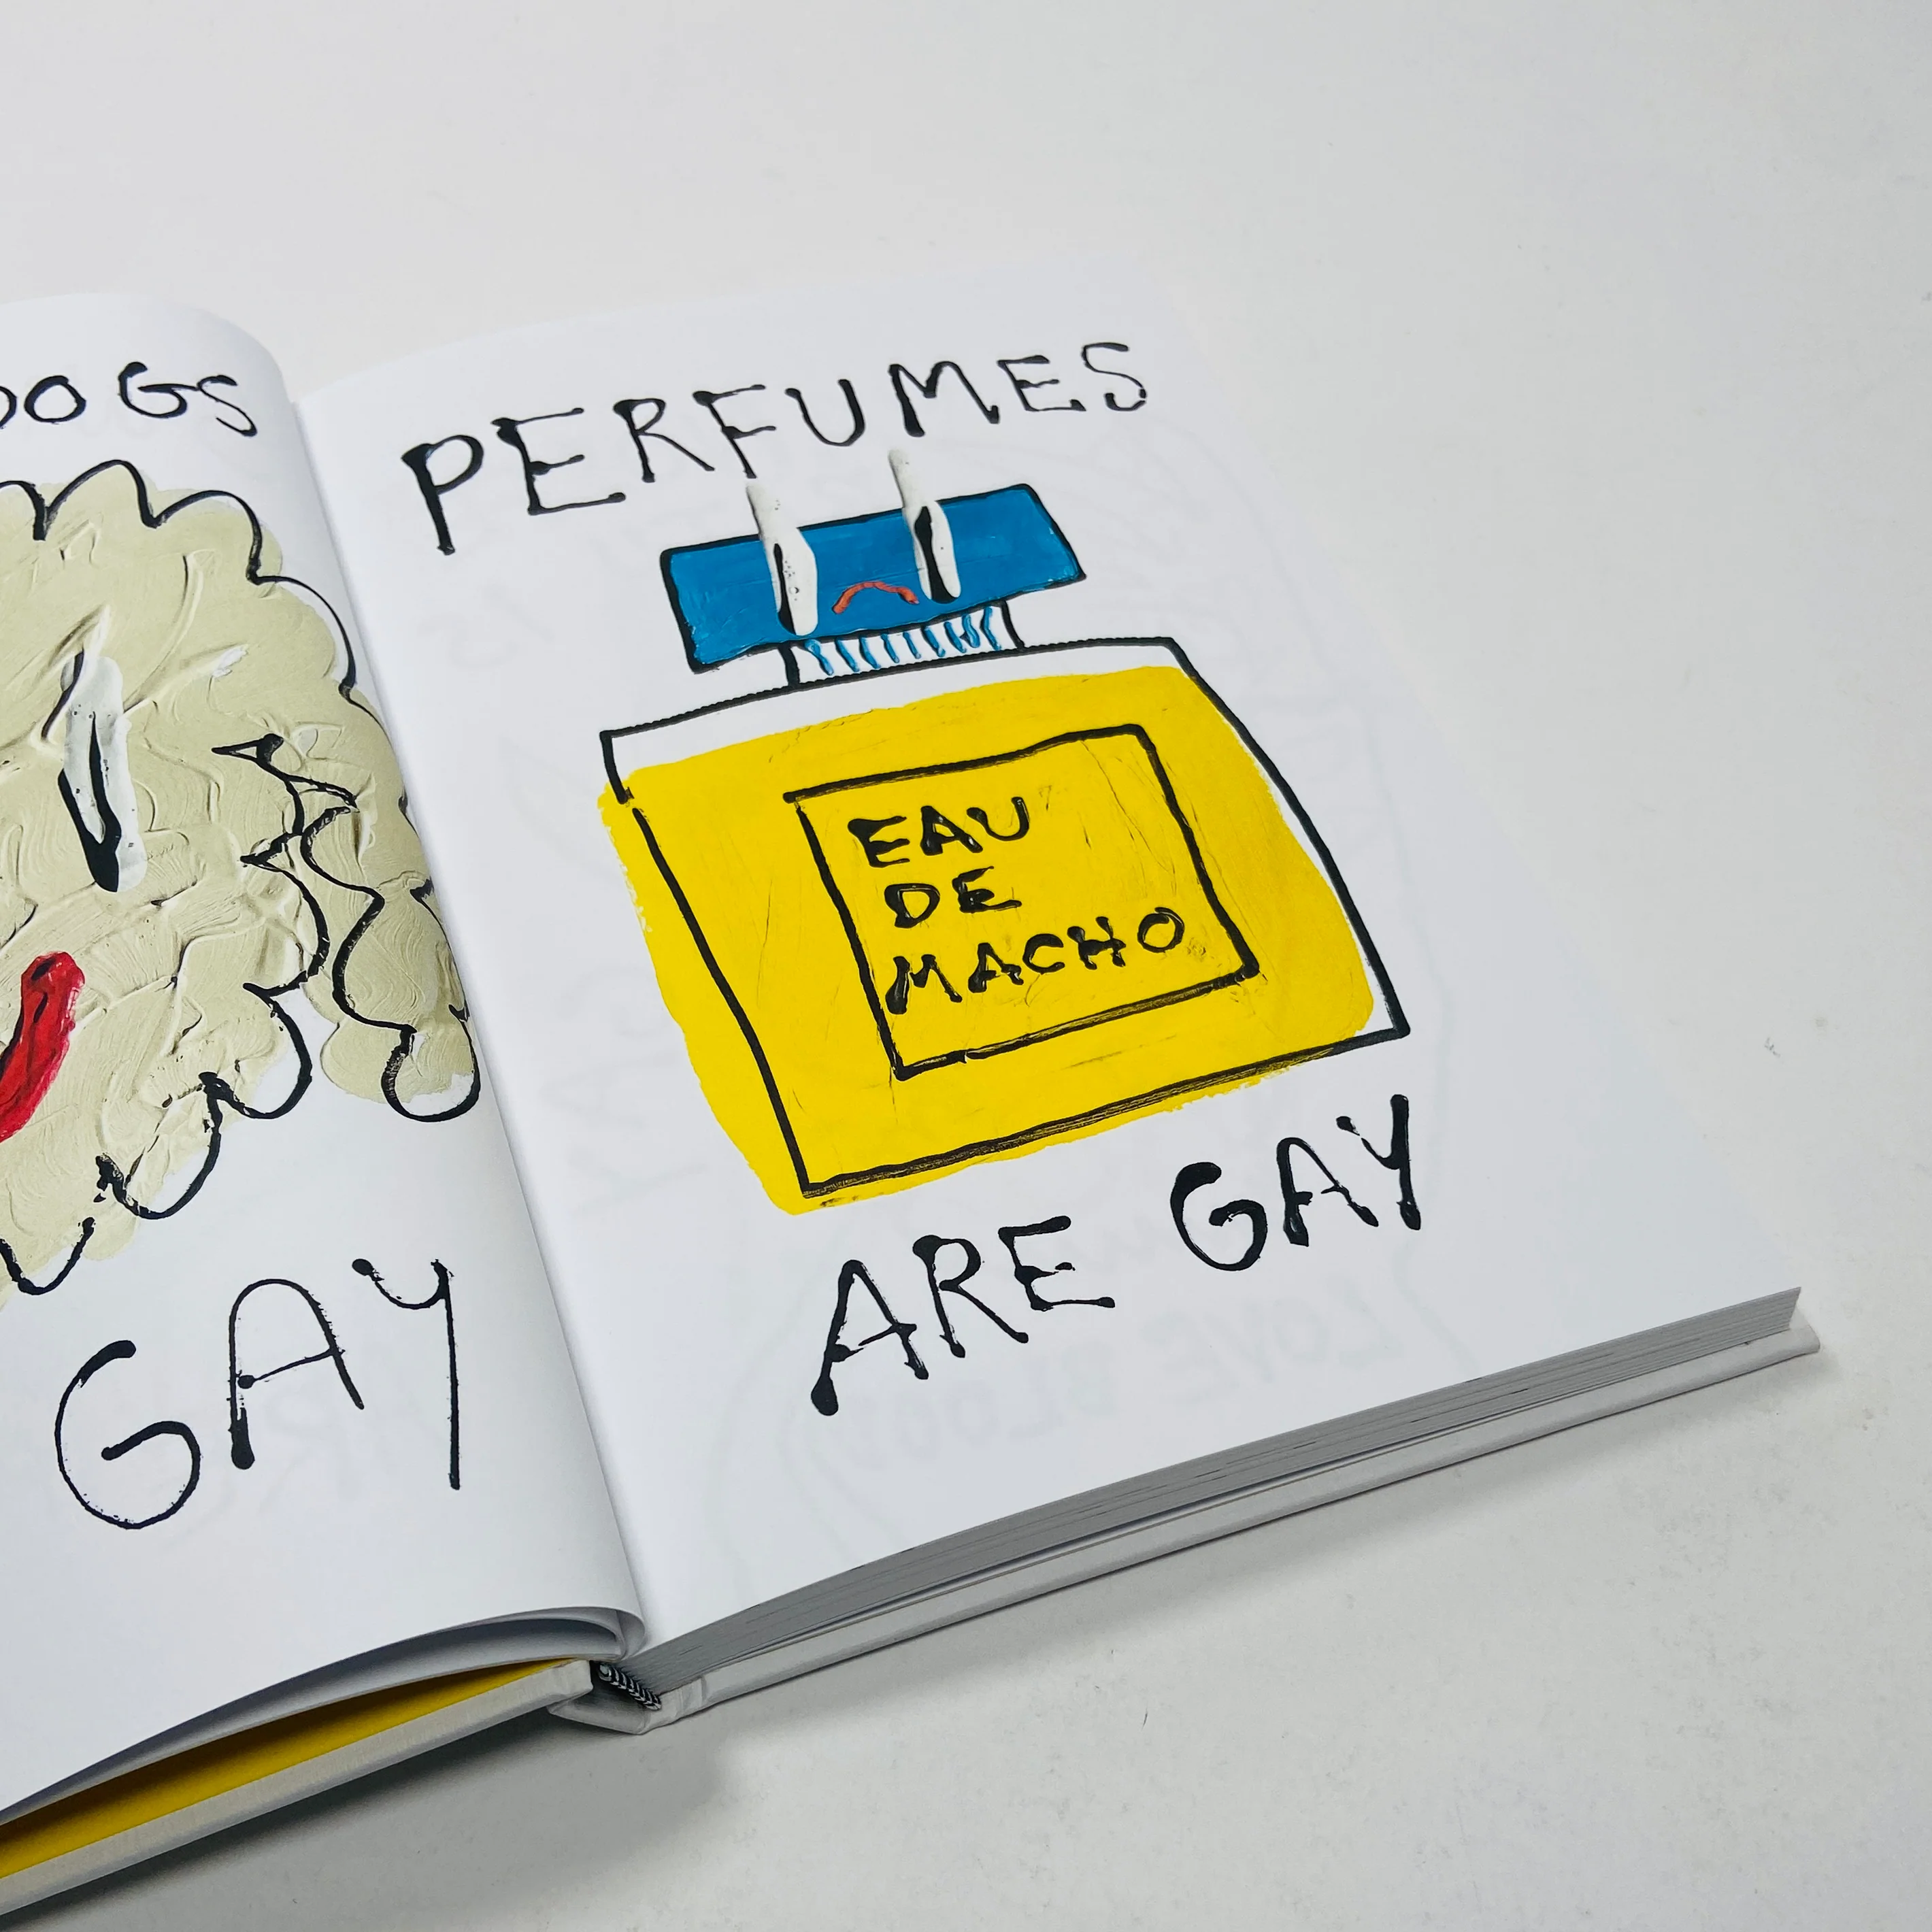 DOGS
GAY
PERFUMES
EAU
DE
MACHO
ARE GAY